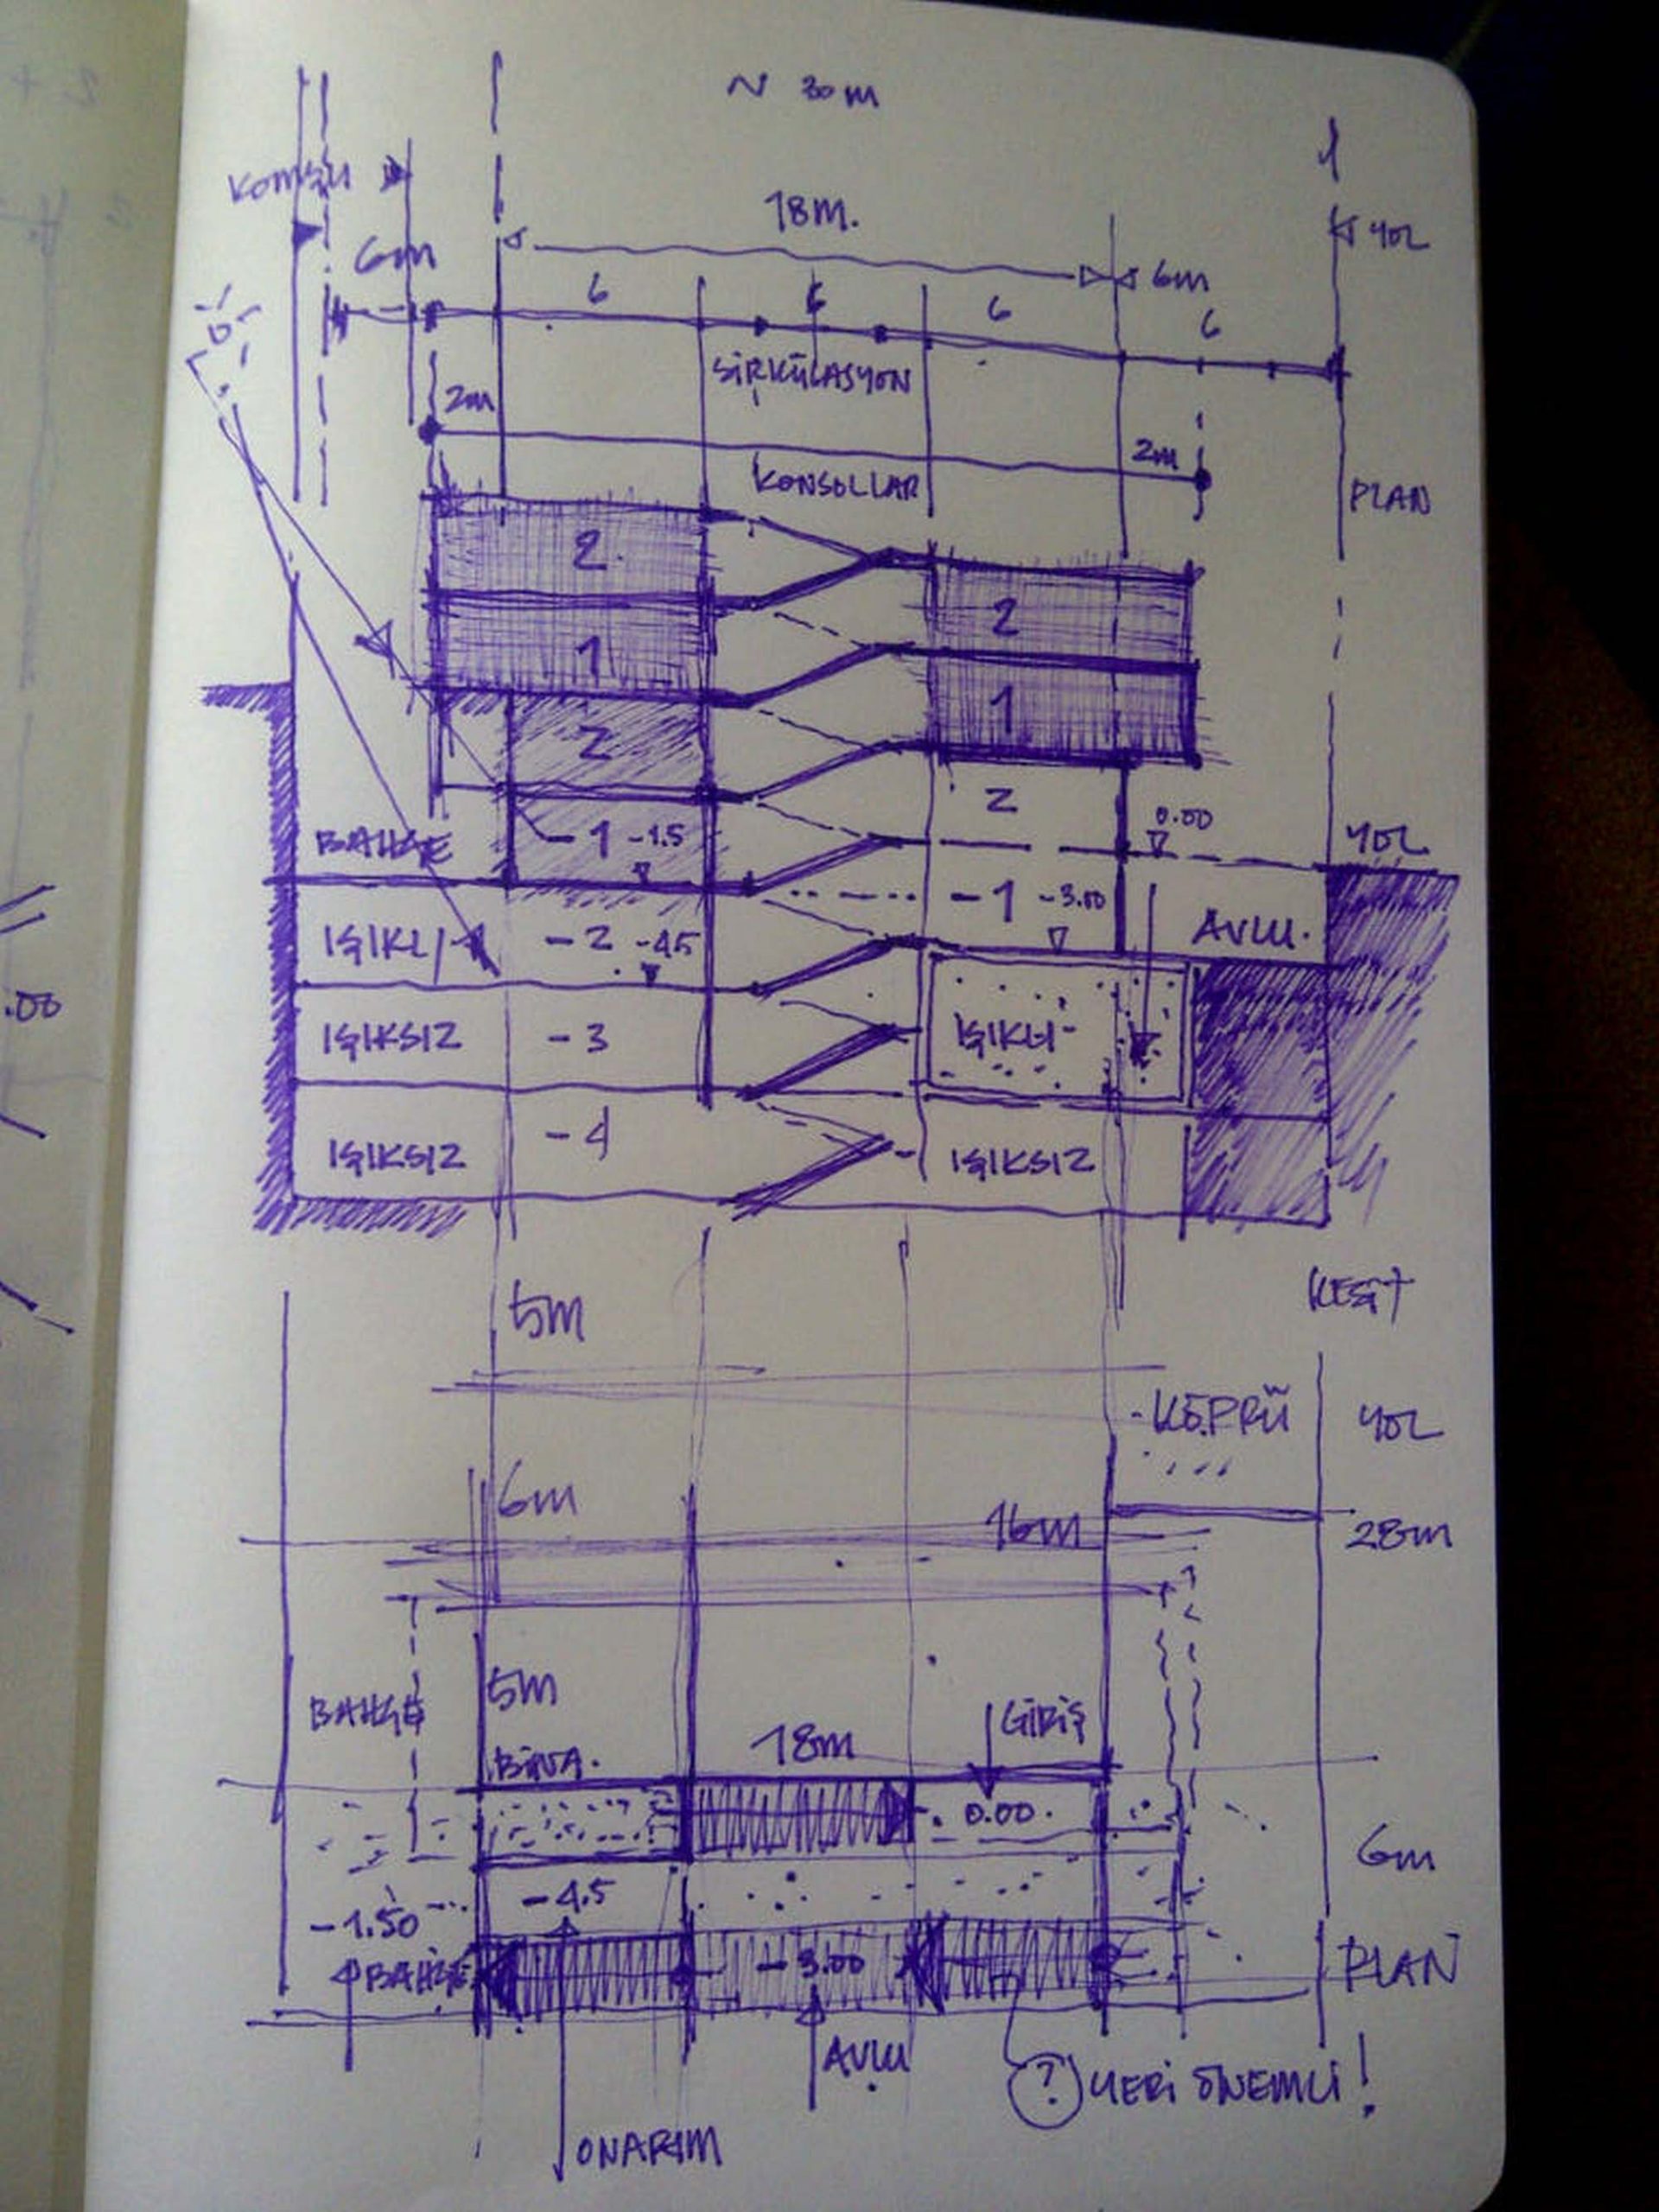 N 30m
KOMŞU
18M.
YOL
6m
6m
6
6
6
6
SİRKÜLASYON
2m
2m
KONSOLLAR
PLAN
2
2
1
1
2
2
0.00
YOL
BAHÇE
-1 -1.5
-1 -3.00
AVLU.
IŞIKLI
-2 -4.5
IŞIKSIZ
-3
IŞIKLI
IŞIKSIZ
-4
IŞIKSIZ
KESİT
5m
KÖPRÜ
YOL
6m
16m
28m
BAHÇE
5m
GİRİŞ
18m
BİNA.
0.00.
6m
-4.5
-1.50
BAHÇE
-3.00
PLAN
AVLU
? YERİ ÖNEMLİ!
ONARIM
.00